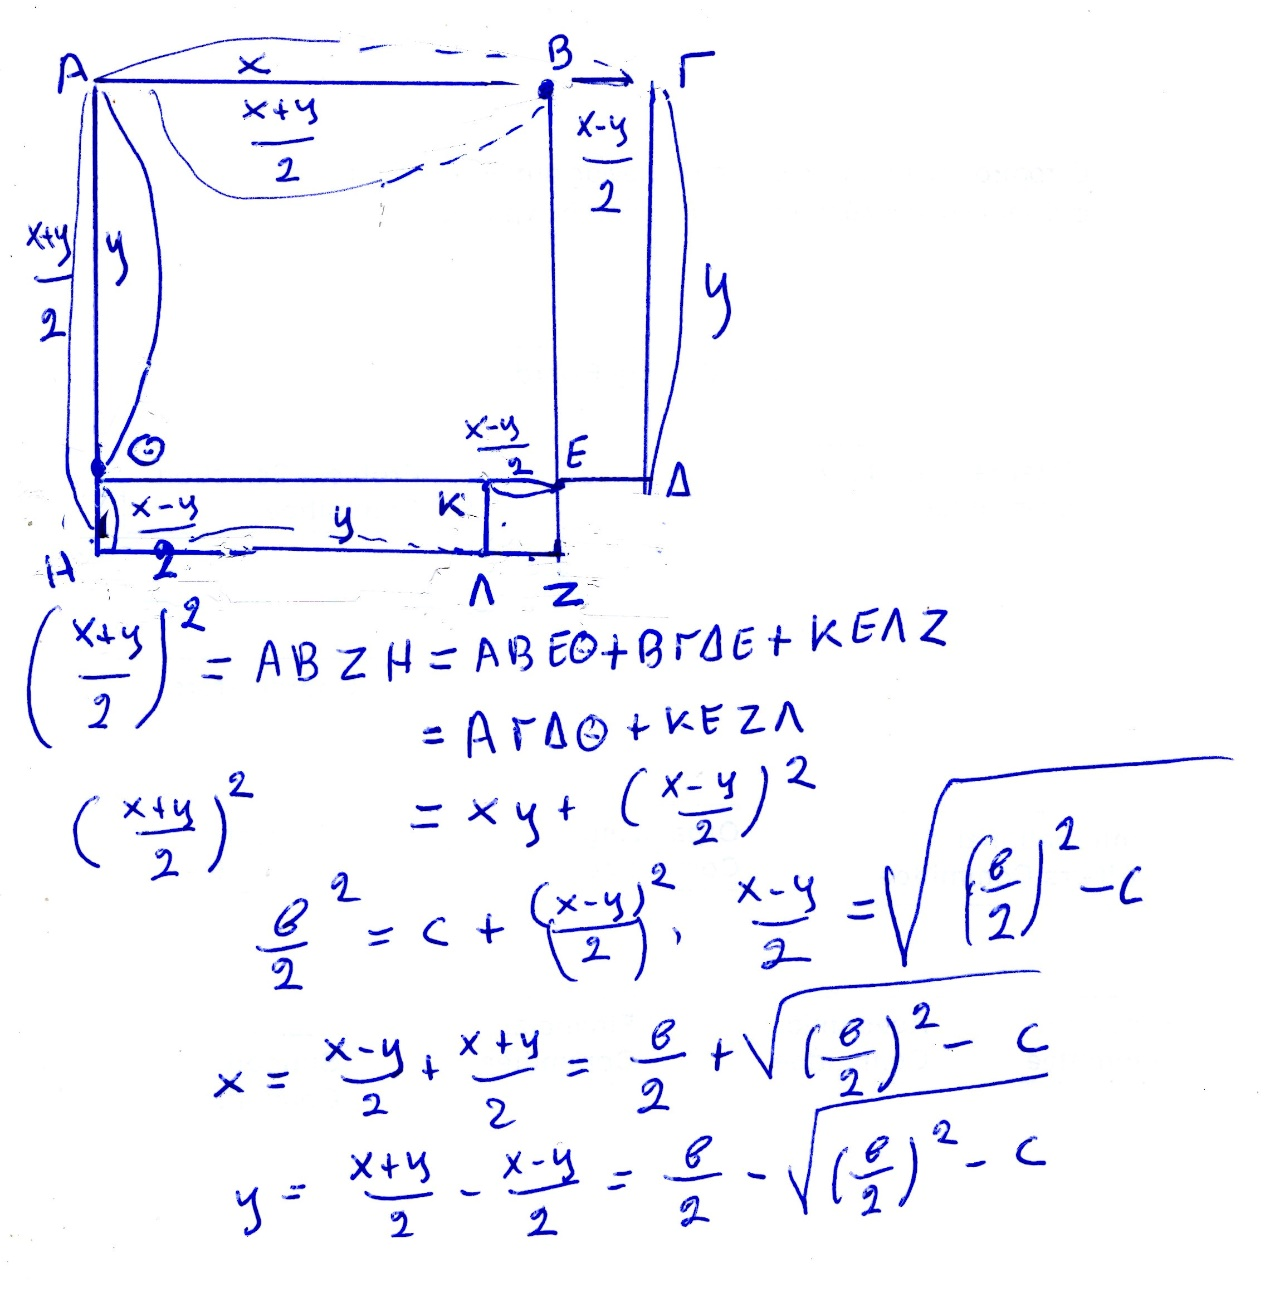 A x B Γ
(x+y)/2 (x-y)/2
(x+y)/2 y y
Θ (x-y)/2 E Δ
(x-y)/2 y K
H Λ Z
((x+y)/2)² = ABZH = ABEΘ + BΓΔE + KEΛZ
= AΓΔΘ + KEZΛ
((x+y)/2)² = xy + ((x-y)/2)²
в/2 ² = c + ((x-y)/2)², (x-y)/2 = √((в/2)² - c)
x = (x-y)/2 + (x+y)/2 = в/2 + √((в/2)² - c)
y = (x+y)/2 - (x-y)/2 = в/2 - √((в/2)² - c)